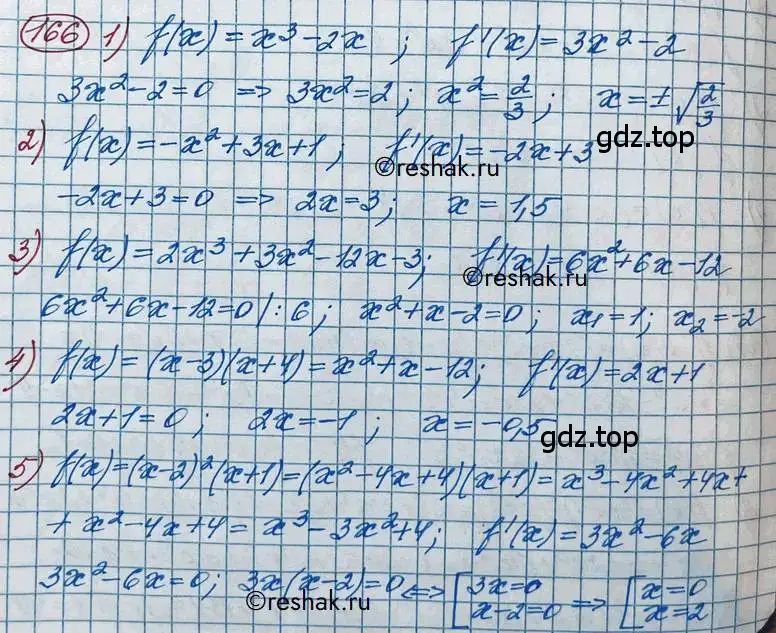 166 1) f(x) = x³ - 2x ; f'(x) = 3x² - 2
3x² - 2 = 0 => 3x² = 2 ; x² = 2/3 ; x = ± √(2/3)
gdz.top
2) f(x) = -x² + 3x + 1 ; f'(x) = -2x + 3
©reshak.ru
-2x + 3 = 0 => 2x = 3 ; x = 1,5
3) f(x) = 2x³ + 3x² - 12x - 3 ; f'(x) = 6x² + 6x - 12
©reshak.ru
6x² + 6x - 12 = 0 | : 6 ; x² + x - 2 = 0 ; x₁ = 1 ; x₂ = -2
4) f(x) = (x - 3)(x + 4) = x² + x - 12 ; f'(x) = 2x + 1
2x + 1 = 0 ; 2x = -1 ; x = -0,5
gdz.top
5) f(x) = (x - 2)² (x + 1) = (x² - 4x + 4)(x + 1) = x³ - 4x² + 4x +
+ x² - 4x + 4 = x³ - 3x² + 4 ; f'(x) = 3x² - 6x
3x² - 6x = 0 ; 3x(x - 2) = 0 <=> [ 3x = 0 x - 2 = 0 => [ x = 0 x = 2
©reshak.ru